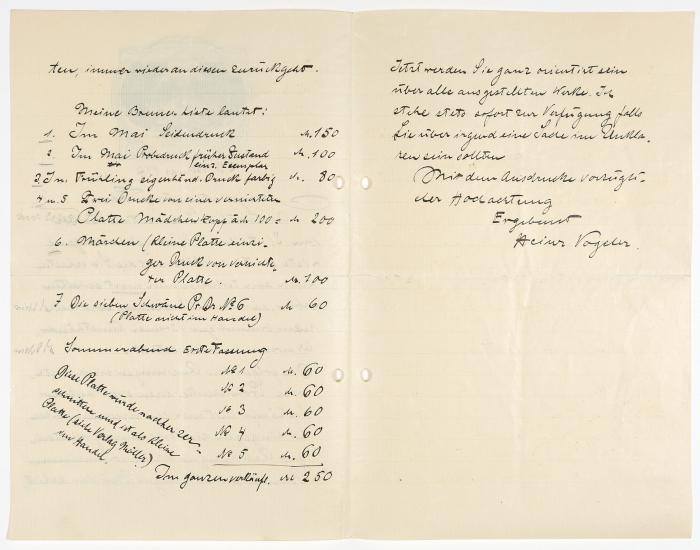 ten, immer wieder an diesen zurückgeht.
Meine Bremer Liste lautet:
1. Im Mai Seidendruck M. 150
2. Im Mai Probedruck früher Zustand M. 100
einz. Exemplar
3. Im Frühling eigenhänd. Druck farbig M. 80
4 u. 5 Zwei Drucke von einer vernichteten
Platte Mädchenkopf à M 100 = M 200
6. Märchen (kleine Platte einzi-
ger Druck von vernichte-
ter Platte. M. 100
7 Die sieben Schwäne Pr. Dr. No 6 M 60
(Platte nicht im Handel)
Sommerabend Erste Fassung
No 1 M. 60
No 2 M. 60
No 3 M. 60
No 4 M. 60
No 5 M. 60
Diese Platte wurde nachher zer-
schnitten und ist als kleine
Platte (siehe Verlag Möller)
im Handel.
Im ganzen verkäufl. M 250
Jetzt werden Sie ganz orientirt sein
über alle ausgestellten Werke. Ich
stehe stets sofort zur Verfügung falls
Sie über irgend eine Sache im Unkla-
ren sein sollten
Mit dem Ausdrucke vorzügli-
cher Hochachtung
Ergebenst
Heinr Vogeler.